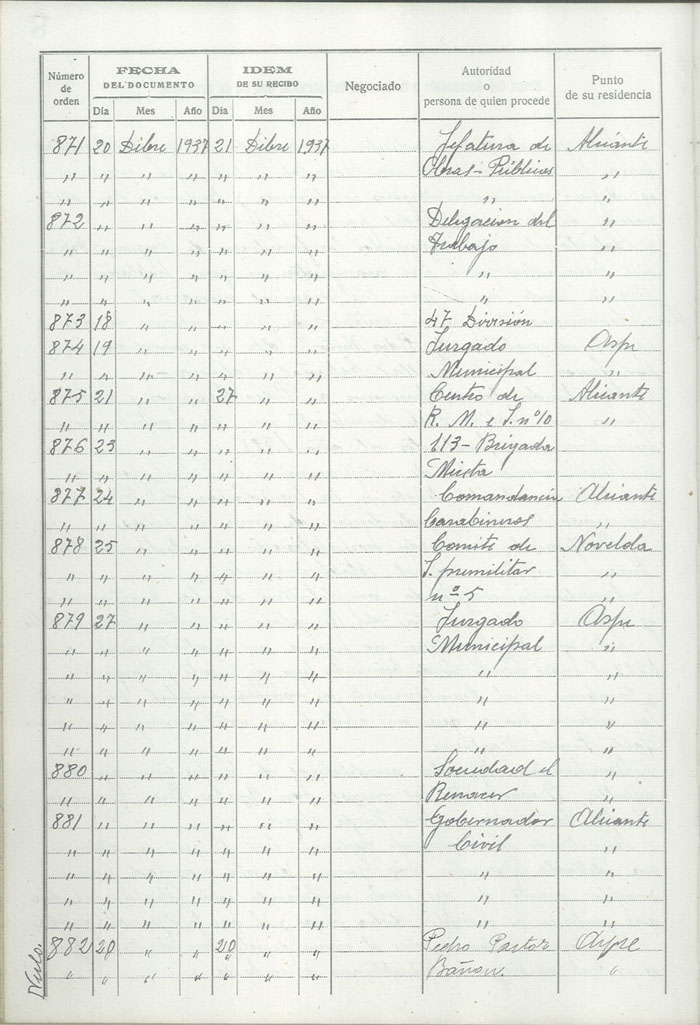 Número de orden FECHA DEL DOCUMENTO IDEM DE SU RECIBO Negociado Autoridad o persona de quien procede Punto de su residencia
Día Mes Año Día Mes Año
871 20 Dibre 1937 21 Dibre 1937 Jefatura de Alicante
" " " " " " " Obras-Públicas "
" " " " " " " " "
872 " " " " " " Delegacion del "
" " " " " " " Trabajo "
" " " " " " " " "
" " " " " " " " "
873 18 " " " " " 47 División
874 19 " " " " " Jurgado Aspe
" " " " " " " Municipal "
875 21 " " 27 " " Centro de Alicante
" " " " " " " R. M. e I. nº 10 "
876 23 " " " " " 113-Brigada
" " " " " " " Micta
877 24 " " " " " Comandancia Alicante
" " " " " " " Carabineros "
878 25 " " " " " Comite de Novelda
" " " " " " " I. premilitar "
" " " " " " " nº 5 "
879 27 " " " " " Jurgado Aspe
" " " " " " " Municipal "
" " " " " " " " "
" " " " " " " " "
" " " " " " " " "
" " " " " " " " "
880 " " " " " " Sociedad el "
" " " " " " " Renacer "
881 " " " " " " Gobernador Alicante
" " " " " " " Civil "
" " " " " " " " "
" " " " " " " " "
" " " " " " " " "
Nulo. 882 20 " " 20 " " Pedro Pastor Aspe
" " " " " " " Bañon. "